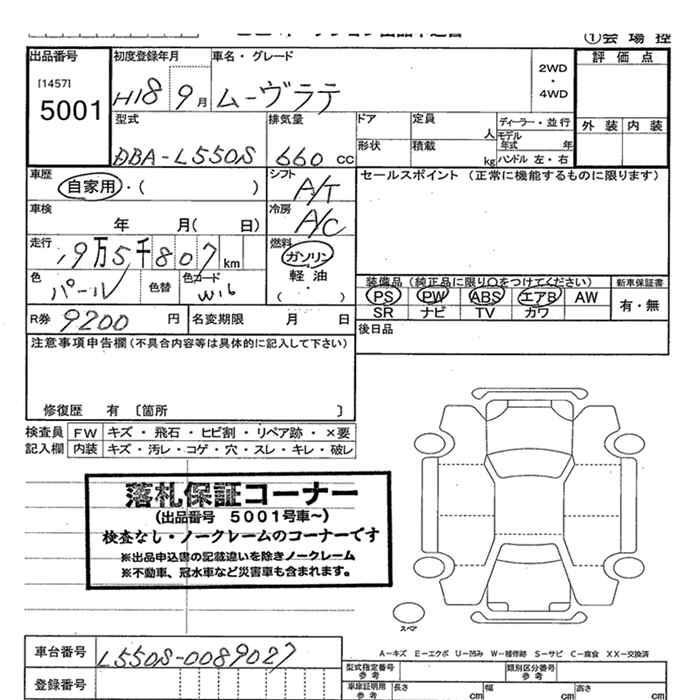 ①会場控
出品番号 初度登録年月 車名・グレード 評価点
[1457] 5001
H18 9月 ムーヴラテ
2WD
・
4WD
型式 排気量 ドア 定員 人 ディーラー・並行 外装 内装
DBA-L550S 660 cc 形状 積載 kg モデル年式 年
ハンドル 左・右
車歴 シフト セールスポイント (正常に機能するものに限ります)
自家用・( ) A/T
車検 冷房
年 月( 日) A/C
走行 燃料
9万5千807km ガソリン
色 パール 色替 色コード W16 軽油
・
( )
装備品 (純正品に限り○をつけてください) 新車保証書
PS PW ABS エアB AW 有・無
SR ナビ TV カワ
R券 9200円 名変期限 月 日 後日品
注意事項申告欄(不具合内容等は具体的に記入して下さい)
修復歴 有 〔箇所 〕
検査員 FW キズ・飛石・ヒビ割・リペア跡・×要
記入欄 内装 キズ・汚レ・コゲ・穴・スレ・キレ・破レ
落札保証コーナー
(出品番号 5001号車~)
検査なし・ノークレームのコーナーです
※出品申込書の記載違いを除きノークレーム
※不動車、冠水車など災害車も含まれます。
スペア
A-キズ E-エクボ U-凹み W-補修跡 S-サビ C-腐食 XX-交換済
車台番号 L550S-0089027 型式指定番号 参考 類別区分番号 参考
登録番号 車庫証明用 参考 長さ cm 幅 cm 高さ cm